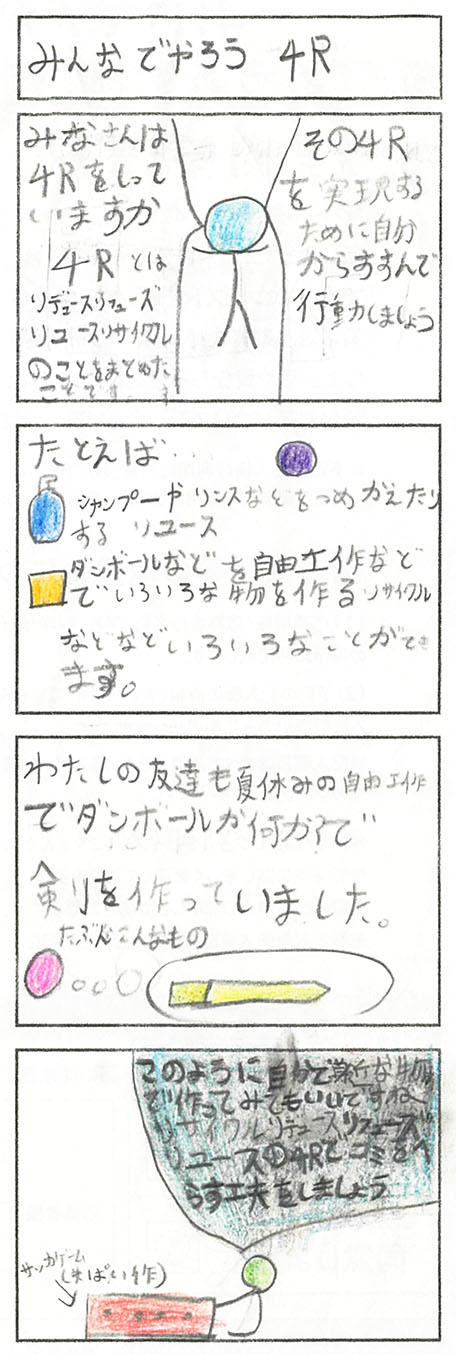 みんなでやろう 4R
みなさんは
4Rをしって
いますか
4Rとは
リデュースリフューズ
リユースリサイクル
のことをまとめた
ことです。
その4R
を実現する
ために自分
からすすんで
行動しましょう
たとえば・・
シャンプーやリンスなどをつめかえたり
する リユース
ダンボールなどを自由工作など
でいろいろな物を作るリサイクル
などなどいろいろなことができ
ます。
わたしの友達も夏休みの自由工作
でダンボールか何か?で
剣を作っていました。
たぶんこんなもの
このように自分で新たな物
を作ってみてもいいですね
リサイクルリデュースリフューズ
リユースの4Rでゴミをへ
らす工夫をしましょう
サッカーゲーム
(しっぱい作)